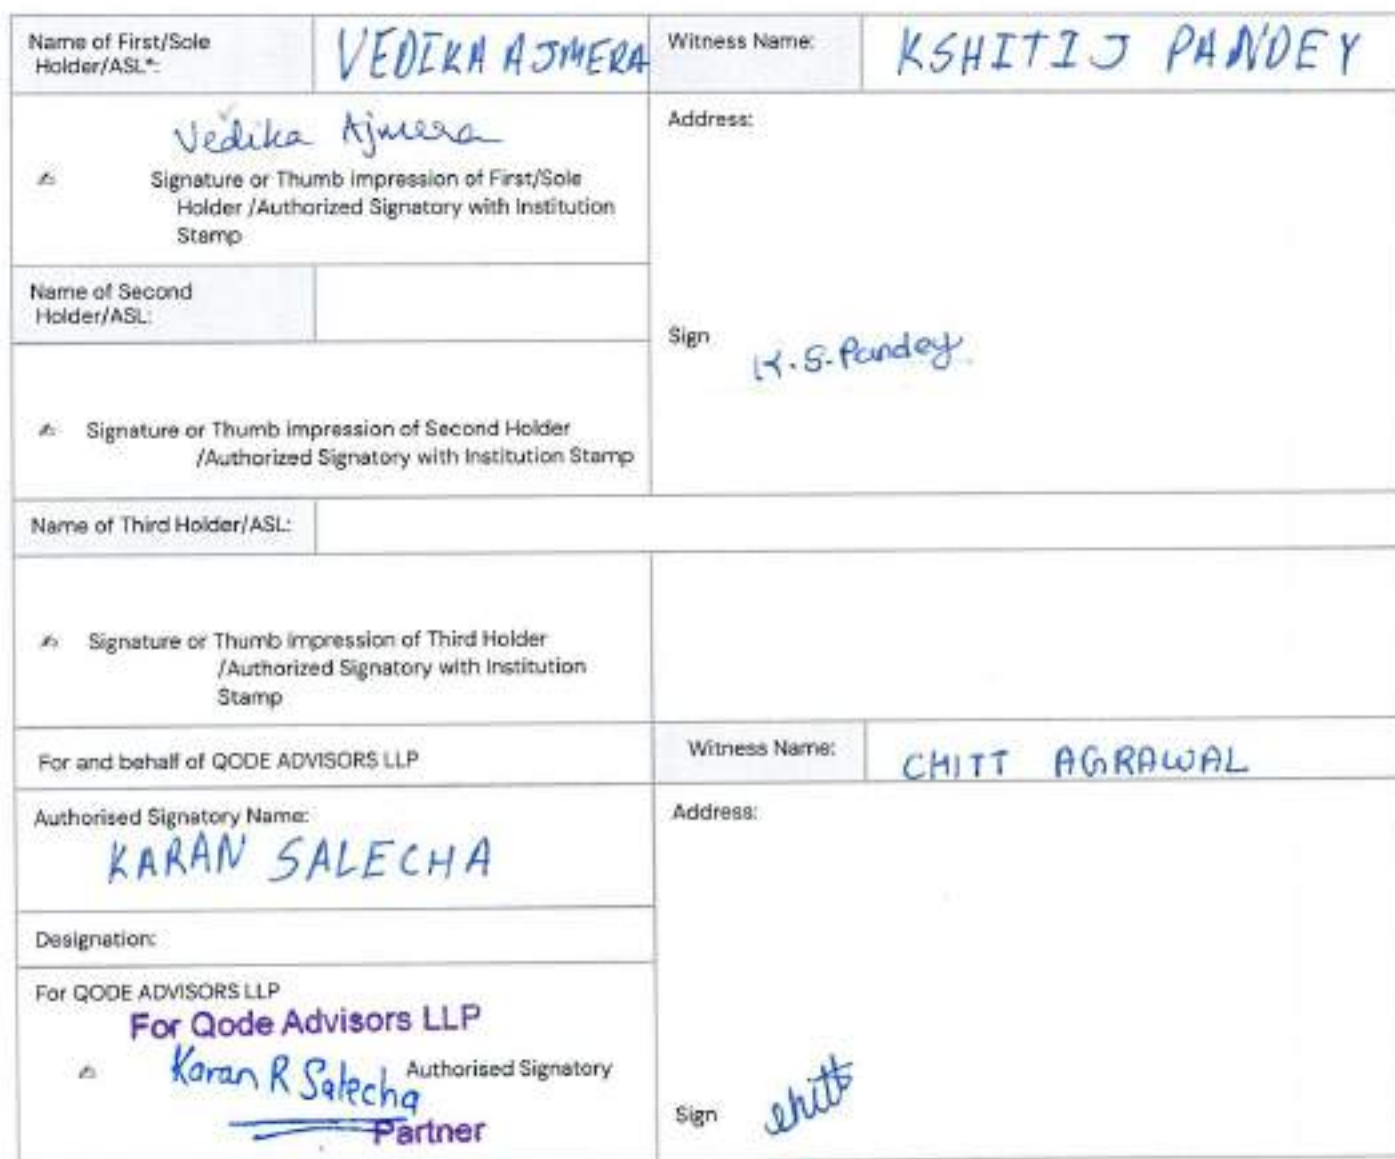 Name of First/Sole
Holder/ASL*:
VEDIKA AJMERA
Witness Name:
KSHITIJ PANDEY
Vedika Ajmera
Signature or Thumb impression of First/Sole
Holder /Authorized Signatory with Institution
Stamp
Address:
Name of Second
Holder/ASL:
Sign
K.S.Pandey
Signature or Thumb impression of Second Holder
/Authorized Signatory with Institution Stamp
Name of Third Holder/ASL:
Signature or Thumb impression of Third Holder
/Authorized Signatory with Institution
Stamp
For and behalf of QODE ADVISORS LLP
Witness Name:
CHITT AGRAWAL
Authorised Signatory Name:
KARAN SALECHA
Address:
Designation:
For QODE ADVISORS LLP
For Qode Advisors LLP
Karan R Salecha
Authorised Signatory
Partner
Sign
chitt